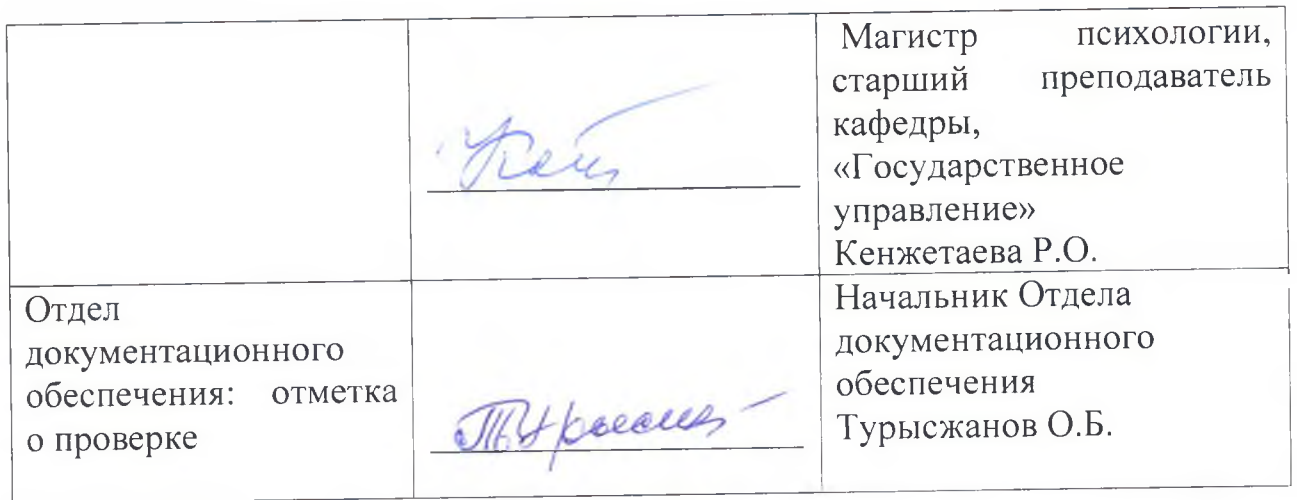 Магистр психологии,
старший преподаватель
кафедры,
«Государственное
управление»
Кенжетаева Р.О.
Отдел
документационного
обеспечения: отметка
о проверке
Начальник Отдела
документационного
обеспечения
Турысжанов О.Б.